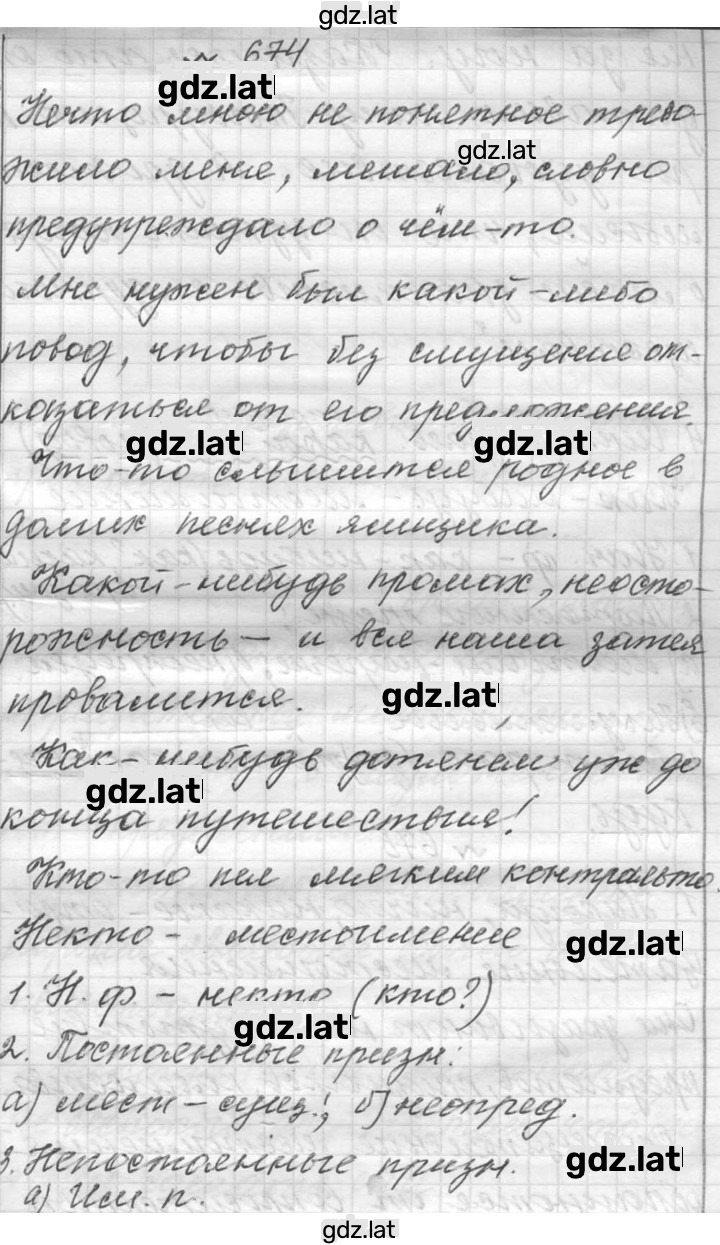 gdz.lat
№ 674
gdz.lat
Нечто мною не понятное трево-
gdz.lat
жило меня, мешало, словно
предупреждало о чём-то.
Мне нужен был какой-либо
повод, чтобы без смущения от-
казаться от его предложения.
gdz.lat gdz.lat
Что-то слышится родное в
долих песнях ямщика.
Какой-нибудь промах, неосто-
рожность – и вся наша затея
провалится. gdz.lat
Как-нибудь дотянем уж до
gdz.lat
конца путешествия!
Кто-то пел мягким контральто.
Некто - местоимение
gdz.lat
1. Н. ф - некто (кто?)
gdz.lat
2. Постоянные призн:
а) мест - сущ.; б) неопред.
3. Непостоянные призн. gdz.lat
а) Им. п.
gdz.lat